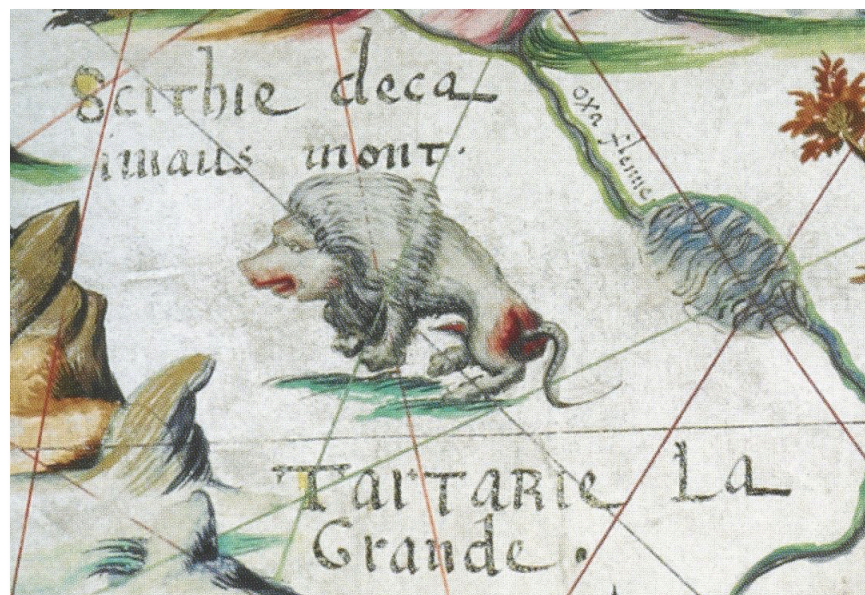 Scithie deca
imaus mont.
oxa flenue
Tartarie La
Grande.